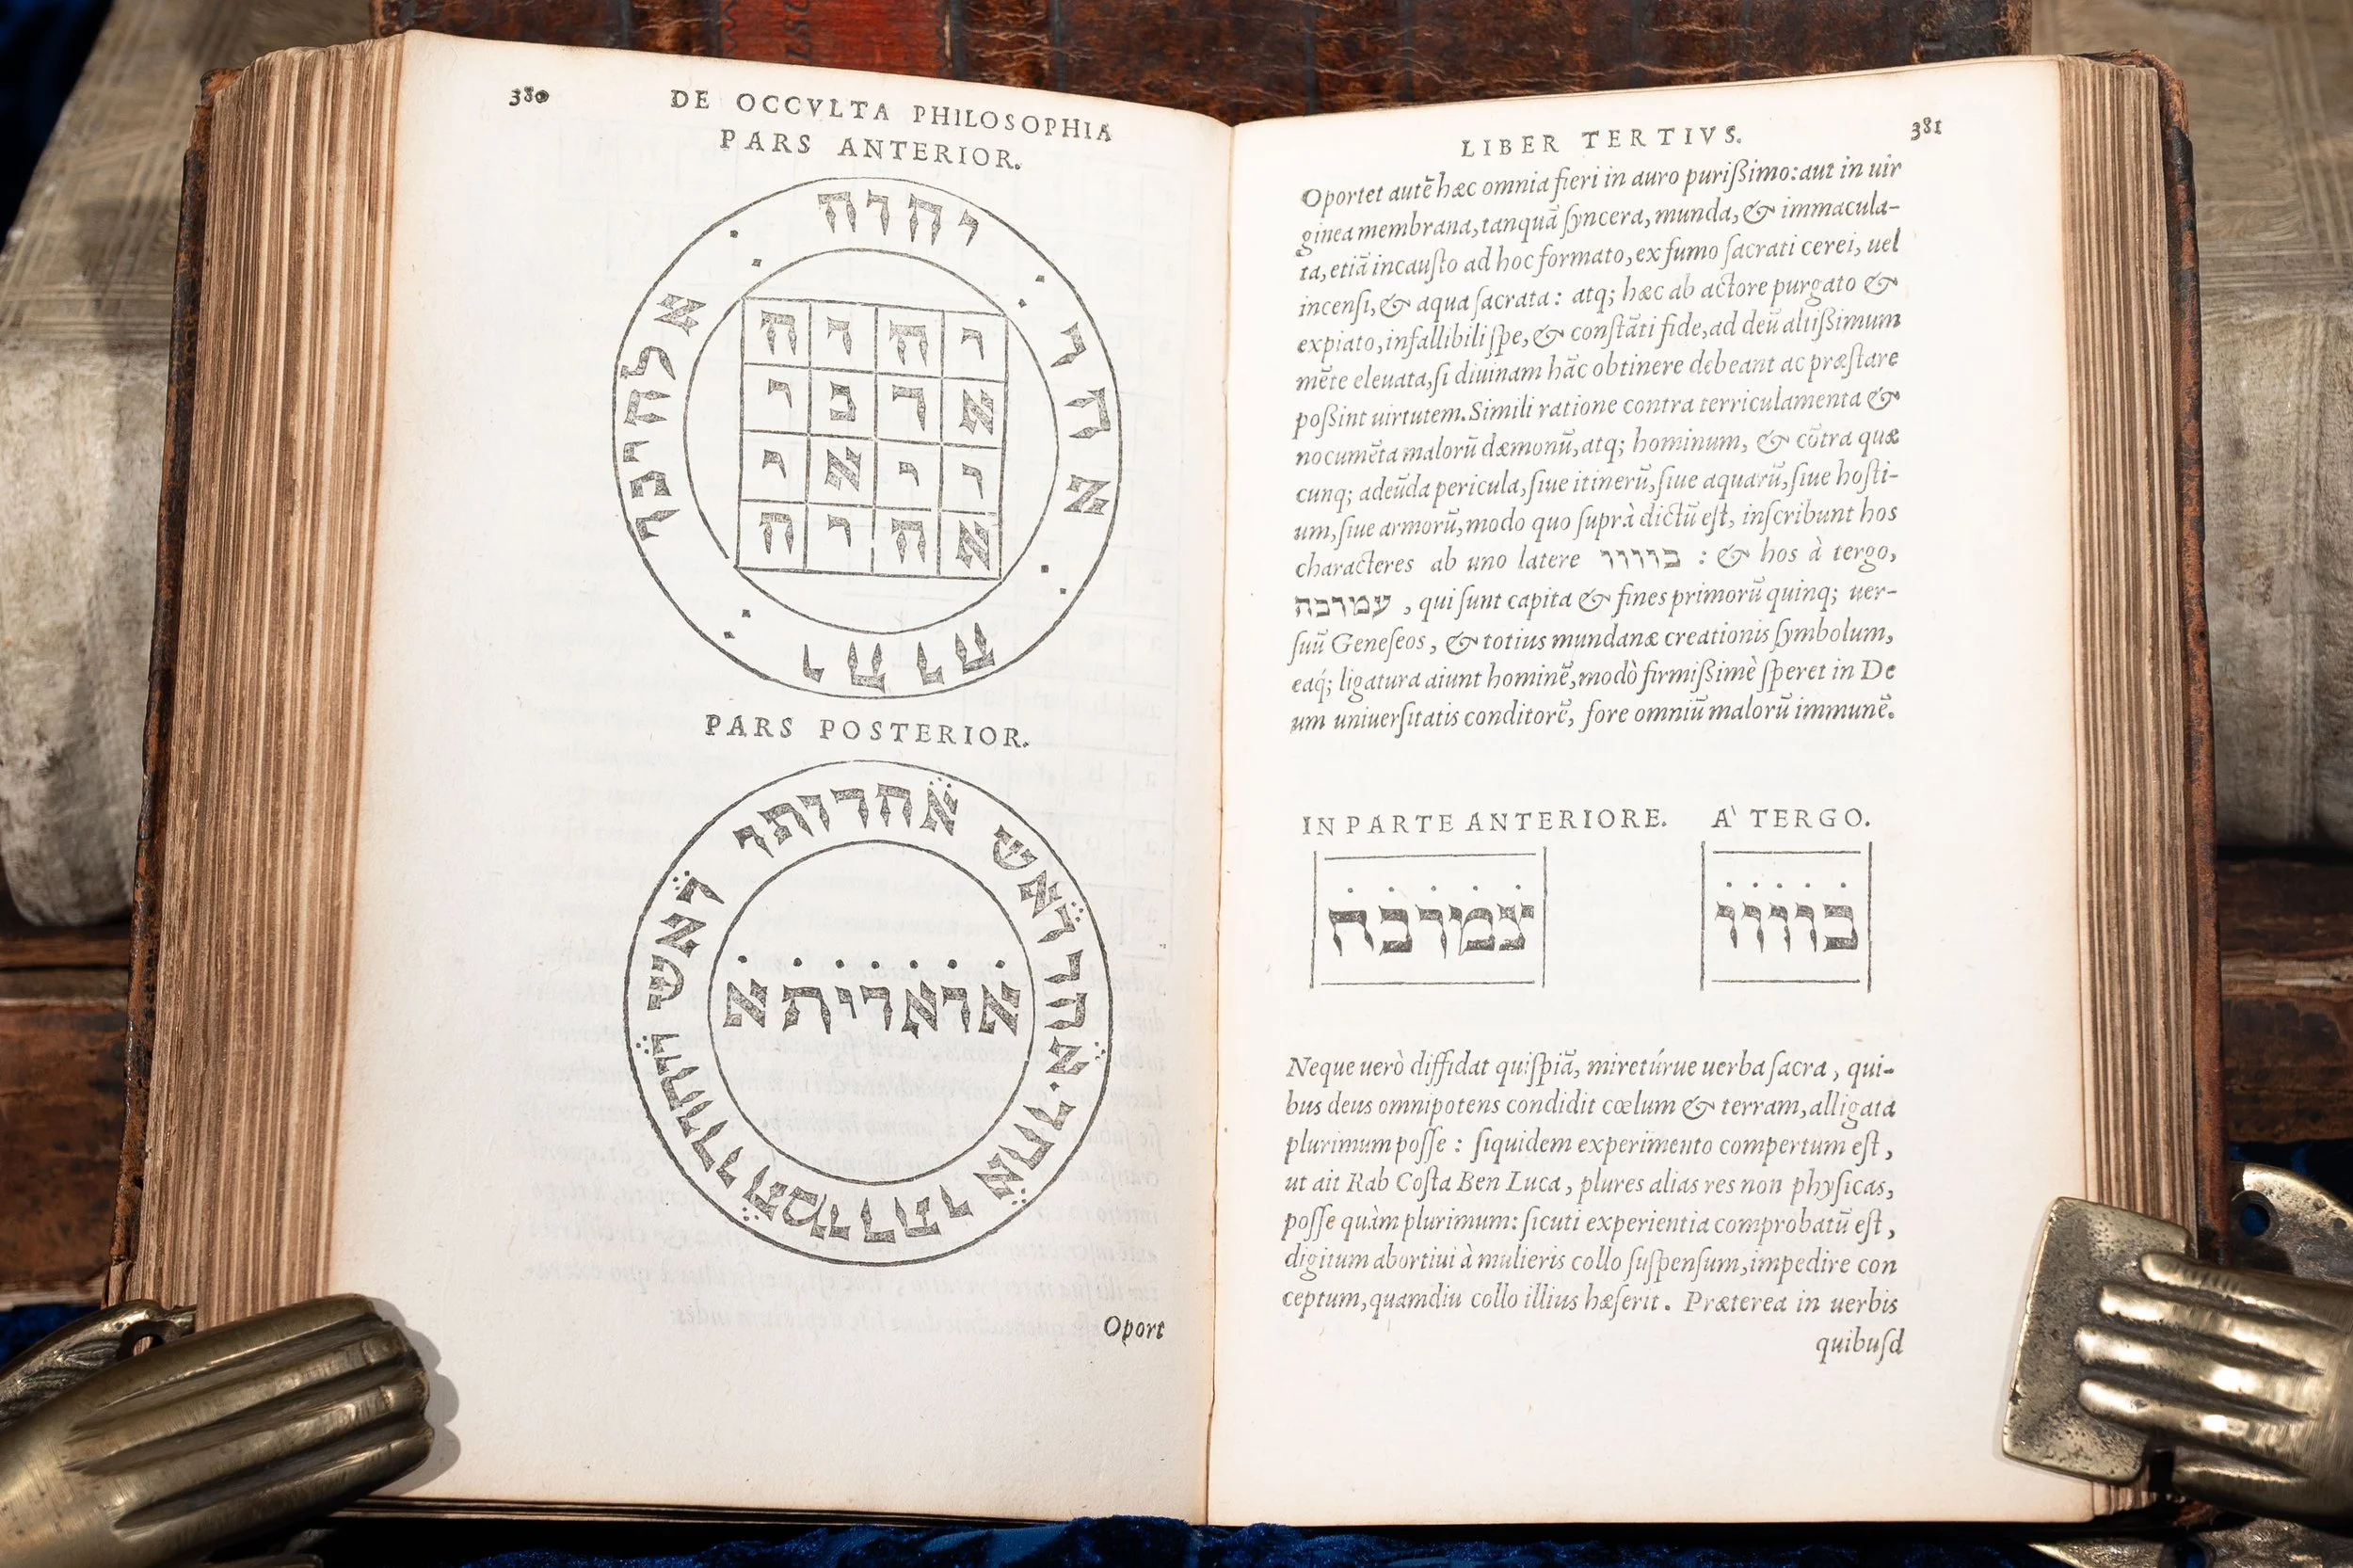 380
DE OCCVLTA PHILOSOPHIA
PARS ANTERIOR.
יהוה
אחד
יהוה
אלהינו
י ה ו ה
א ד נ י
י י א י
א ה י ה
PARS POSTERIOR.
אחדותך
ראש
אחד
אחד
ותמורתו
ייחודו
ראש
אראריתא
Oport
LIBER TERTIVS.
381
Oportet autẽ hæc omnia fieri in auro purißimo: aut in uir
ginea membrana, tanquã ſyncera, munda, & immacula-
ta, etiã incauſto ad hoc formato, ex fumo ſacrati cerei, uel
incenſi, & aqua ſacrata: atq; hæc ab actore purgato &
expiato, infallibili ſpe, & conſtãti fide, ad deũ altißimum
mẽte eleuata, ſi diuinam hãc obtinere debeant ac præſtare
poßint uirtutem. Simili ratione contra terriculamenta &
nocumẽta malorũ dæmonũ, atq; hominum, & cõtra quæ
cunq; adeũda pericula, ſiue itinerũ, ſiue aquarũ, ſiue hoſti-
um, ſiue armorũ, modo quo ſuprà dictũ eſt, inſcribunt hos
characteres ab uno latere בוווו : & hos à tergo,
עמרכה , qui ſunt capita & fines primorũ quinq; uer-
ſuũ Geneſeos, & totius mundanæ creationis ſymbolum,
eaq́; ligatura aiunt hominẽ, modò firmißimè ſperet in De
um uniuerſitatis conditorẽ, fore omniũ malorũ immunẽ.
IN PARTE ANTERIORE. A' TERGO.
צמרכה בוווו
Neque uerò diffidat quiſpiã, miretúrue uerba ſacra, qui-
bus deus omnipotens condidit cœlum & terram, alligata
plurimum poſſe: ſiquidem experimento compertum eſt,
ut ait Rab Coſta Ben Luca, plures alias res non phyſicas,
poſſe quàm plurimum: ſicuti experientia comprobatũ eſt,
digitum abortiui à mulieris collo ſuſpenſum, impedire con
ceptum, quamdiu collo illius hæſerit. Præterea in uerbis
quibuſd